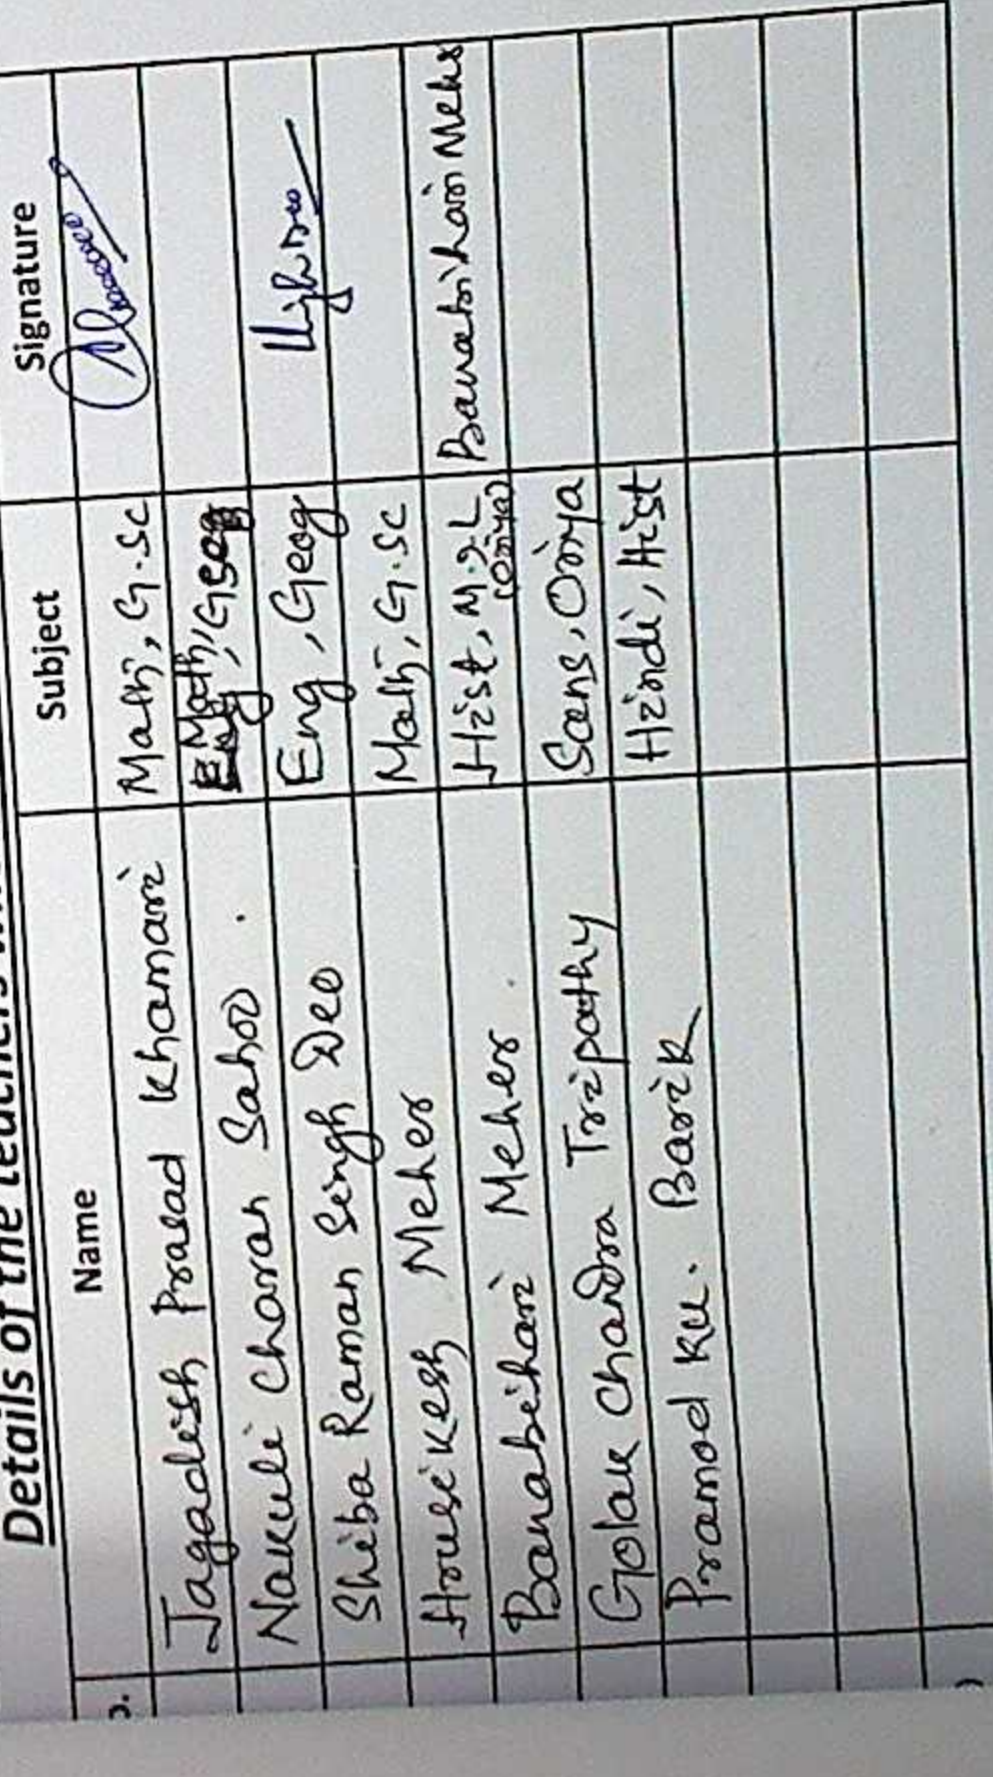 Details of the teachers
Name Subject Signature
Jagadish Prasad Khamari Math, G.Sc
Nakuli Charan Sahoo. Math, Geog
Shiba Raman Singh Deo Eng, Geog
Hrusikesh Meher Math, G.Sc
Banabihari Meher. Hist, M.I.L (Oriya) Banabihari Meher
Golak Chandra Tripathy Sans, Oriya
Pramod Ku. Barik Hindi, Hist